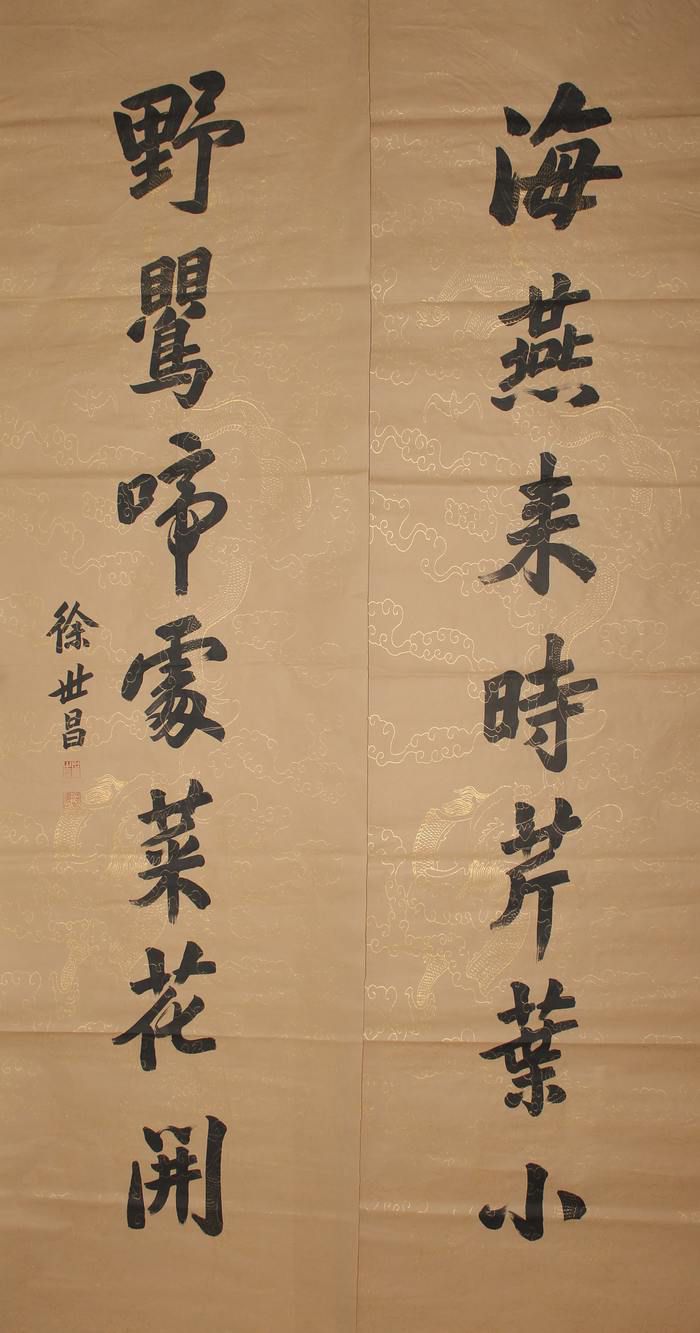 海燕来時芹葉小
野鸎啼處菜花開
徐世昌